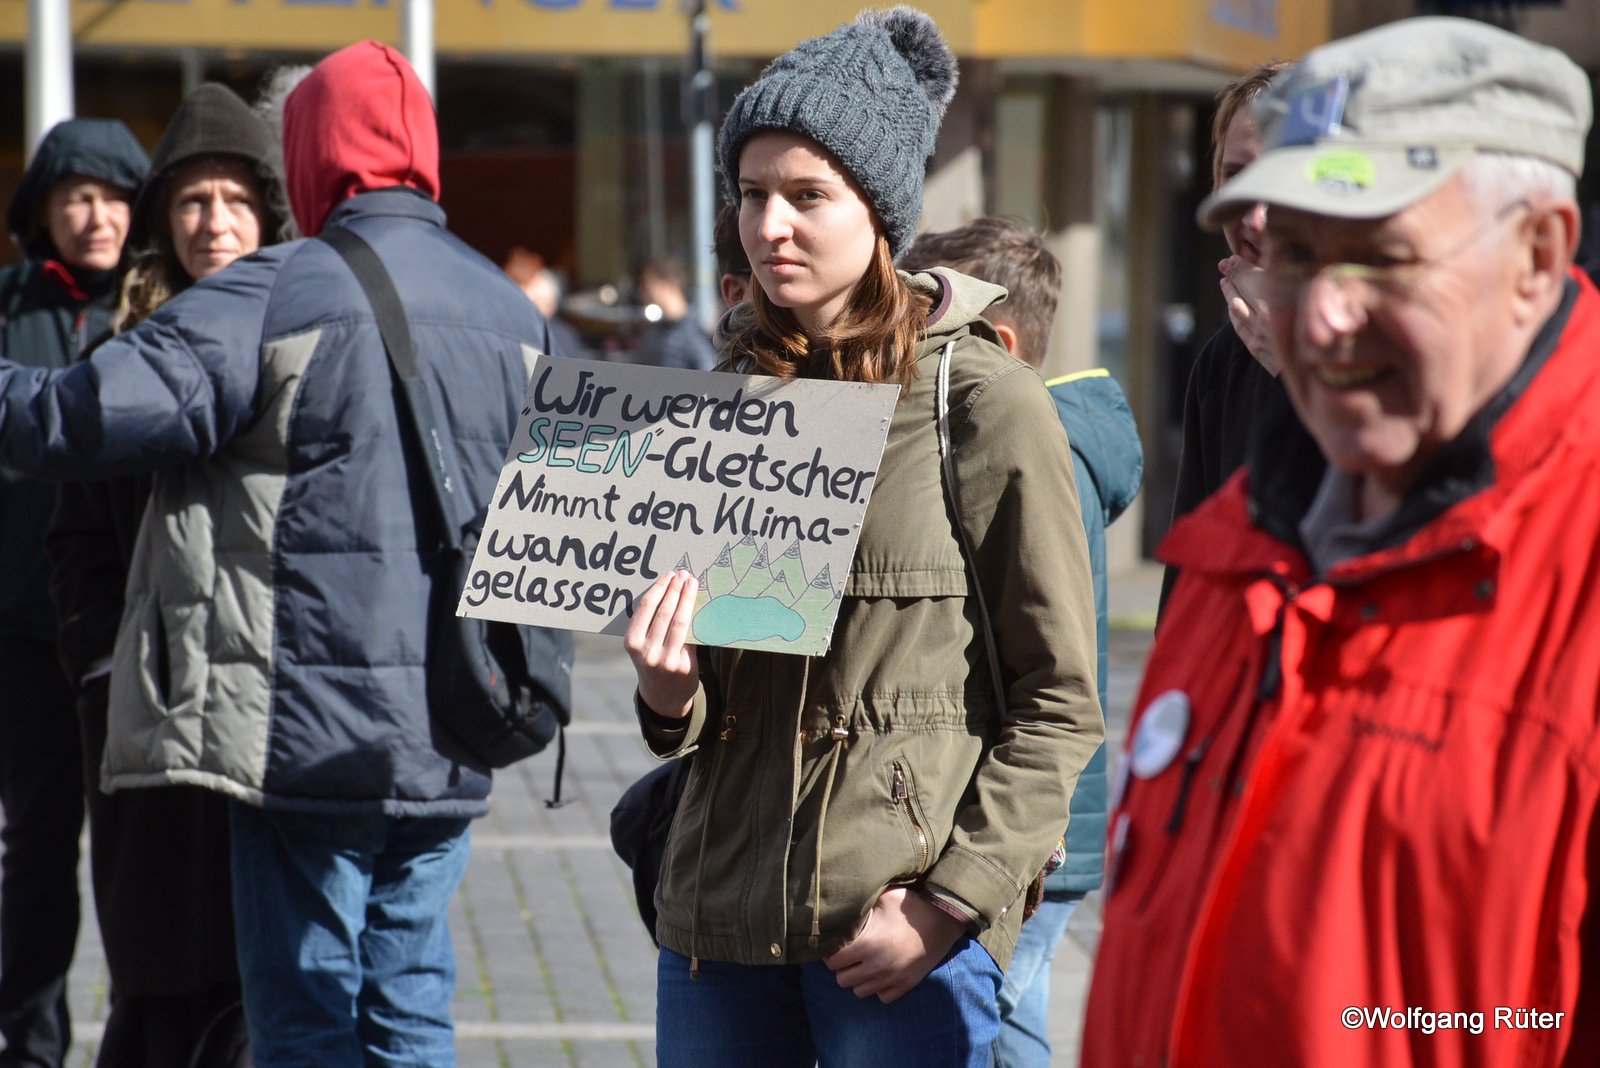 „Wir werden
SEEN“-Gletscher.
Nimmt den Klima-
wandel
gelassen
©Wolfgang Rüter